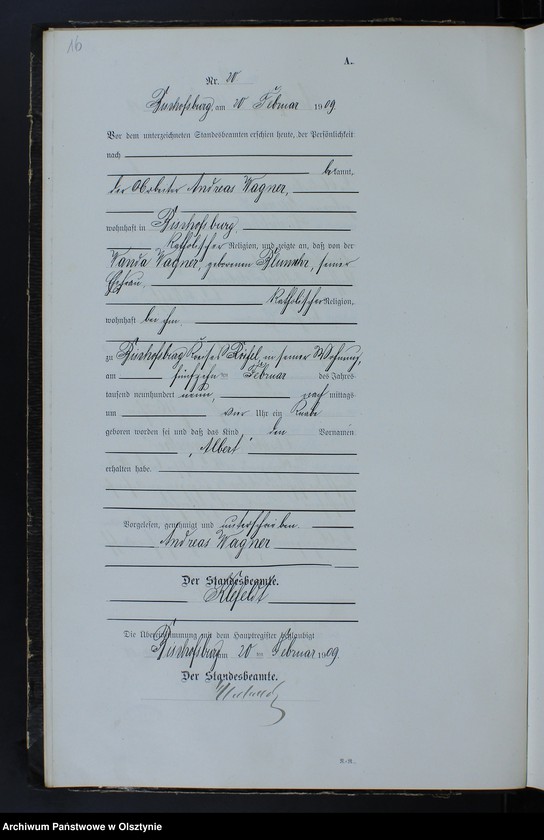 16
A.
Nr. 20
Bischofsburg, am 20 ten Februar 1909
Vor dem unterzeichneten Standesbeamten erschien heute, der Persönlichkeit
nach
bekannt,
der Arbeiter Andreas Wagner,
wohnhaft in Bischofsburg
katholischer Religion, und zeigte an, daß von der
Wanda Wagner, geborenen, seiner
Ehefrau,
katholischer Religion,
wohnhaft bei ihm,
zu Bischofsburg Kreises Rößel, in seiner Wohnung,
am fünfzehn ten Februar des Jahres
tausend neunhundert neun, nach mittags
um vier Uhr ein Knabe
geboren worden sei und daß das Kind den Vornamen
„Albert“
erhalten habe.
Vorgelesen, genehmigt und unterschrieben
Andreas Wagner
Der Standesbeamte.
Klefeldt
Die Übereinstimmung mit dem Hauptregister beglaubigt
Bischofsburg am 20 ten Februar 1909.
Der Standesbeamte.
Archiwum Państwowe w Olsztynie